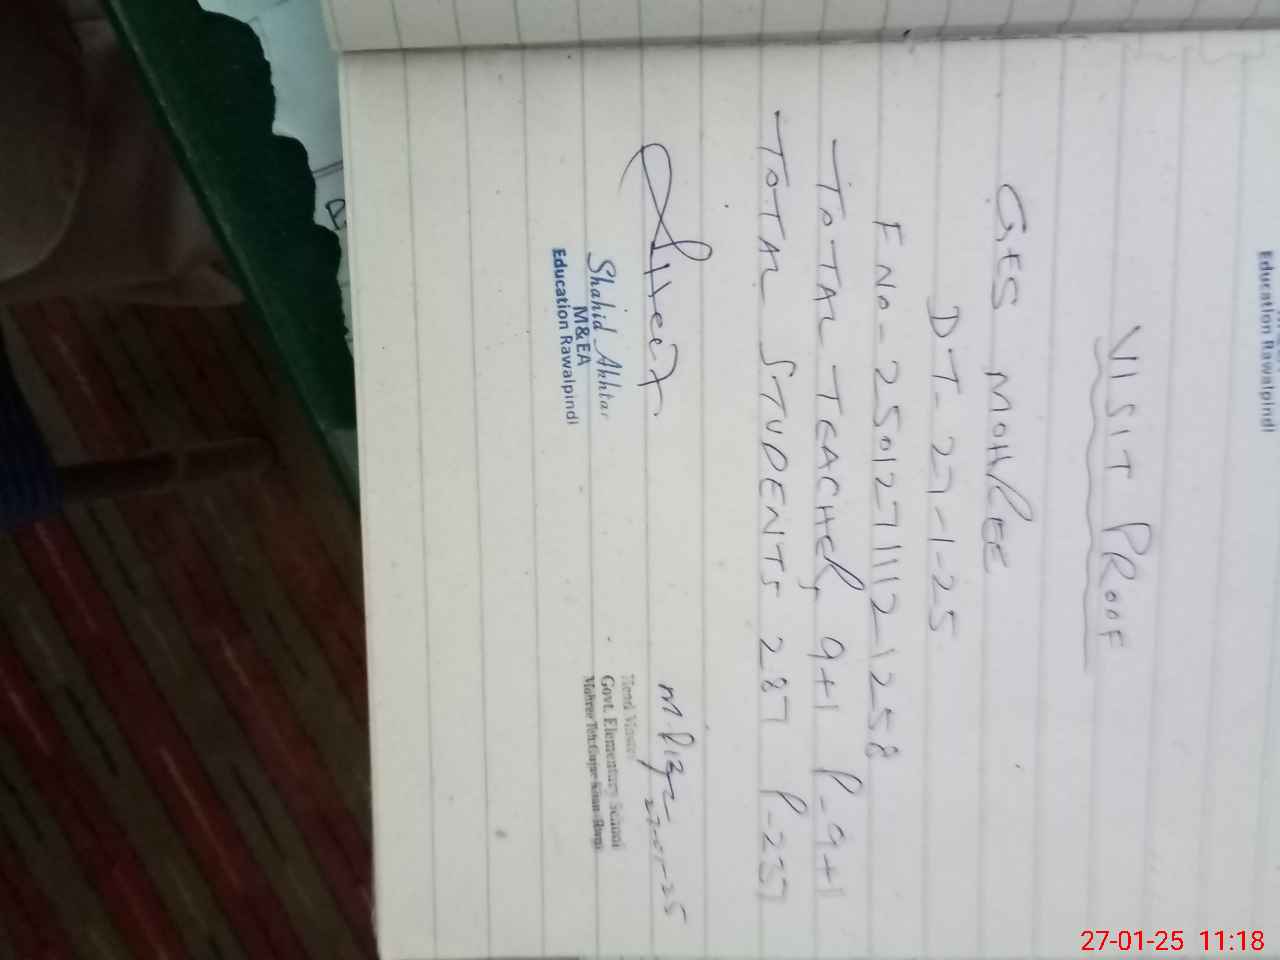 Education Rawalpindi
VISIT PROOF
GES MOHREE
DT- 27-1-25
F NO- 2501271112-1258
TOTAL TEACHER 9+1 P-9+1
TOTAL STUDENTS 287 P-237
27-01-25
Shahid Akhtar
M&EA
Education Rawalpindi
Head Master
Govt. Elementary School
Mohree Teh:Gujar Khan
27-01-25 11:18